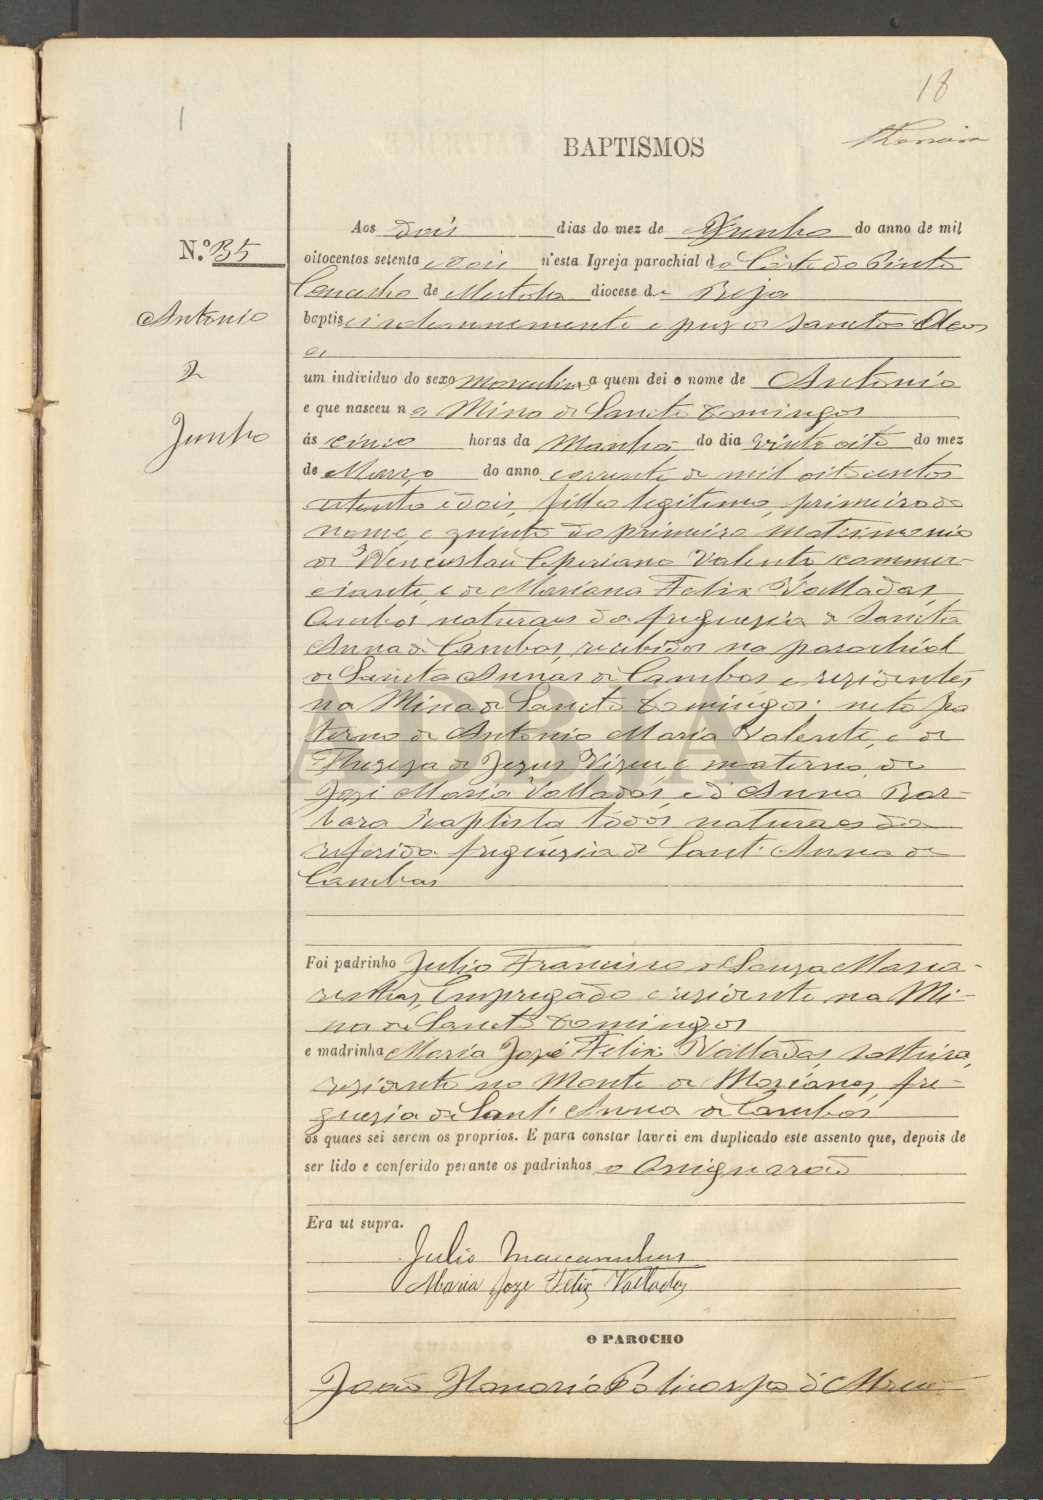 18
1
BAPTISMOS
Aos dois dias do mez de Junho do anno de mil
N.º 35
oitocentos setenta e dois n'esta Igreja parochial da Corte do Pinto
Concelho de Mertola diocese de Beja
Antonio
baptisei solemnemente e puz os Sanctos Oleos
a
2
um individuo do sexo masculino a quem dei o nome de Antonio
e que nasceu na Mina de Sancto Domingos
Junho
ás cinco horas da Manhã do dia vinte oito do mez
de Março do anno corrente de mil oitocentos
setenta e dois, filho legitimo, primeiro do
nome, e quinto do primeiro matrimonio
de Wenceslau Cypriano Valente, commer-
ciante, e de Mariana Felix Valladas,
Ambos naturaes da freguesia de Sancta
Anna de Cambas, recebidos na parochial
de Sancta Anna de Cambas e rezidentes
na Mina de Sancto Domingos; neto pa
terno de Antonio Maria Valente, e de
Thereza de Jezus Vizeu e materno, de
Jozé Maria Valladas, e d'Anna Bar-
bara Baptista todos naturaes da
referida freguezia de Sant'Anna de
Cambas
ADBJA
Foi padrinho Julio Francisco de Souza Masca-
renhas, Empregado e rezidente na Mi-
na de Sancto Domingos
e madrinha Maria Jozé Felix Valladas, solteira,
rezidente no Monte de Moreanes, fre-
guezia de Sant'Anna de Cambas
os quaes sei serem os proprios. E para constar lavrei em duplicado este assento que, depois de
ser lido e conferido perante os padrinhos o assignarão
Era ut supra.
Julio Mascarenhas
Maria Joze Felix Valladas
O PAROCHO
João Honorio Policarpo d'